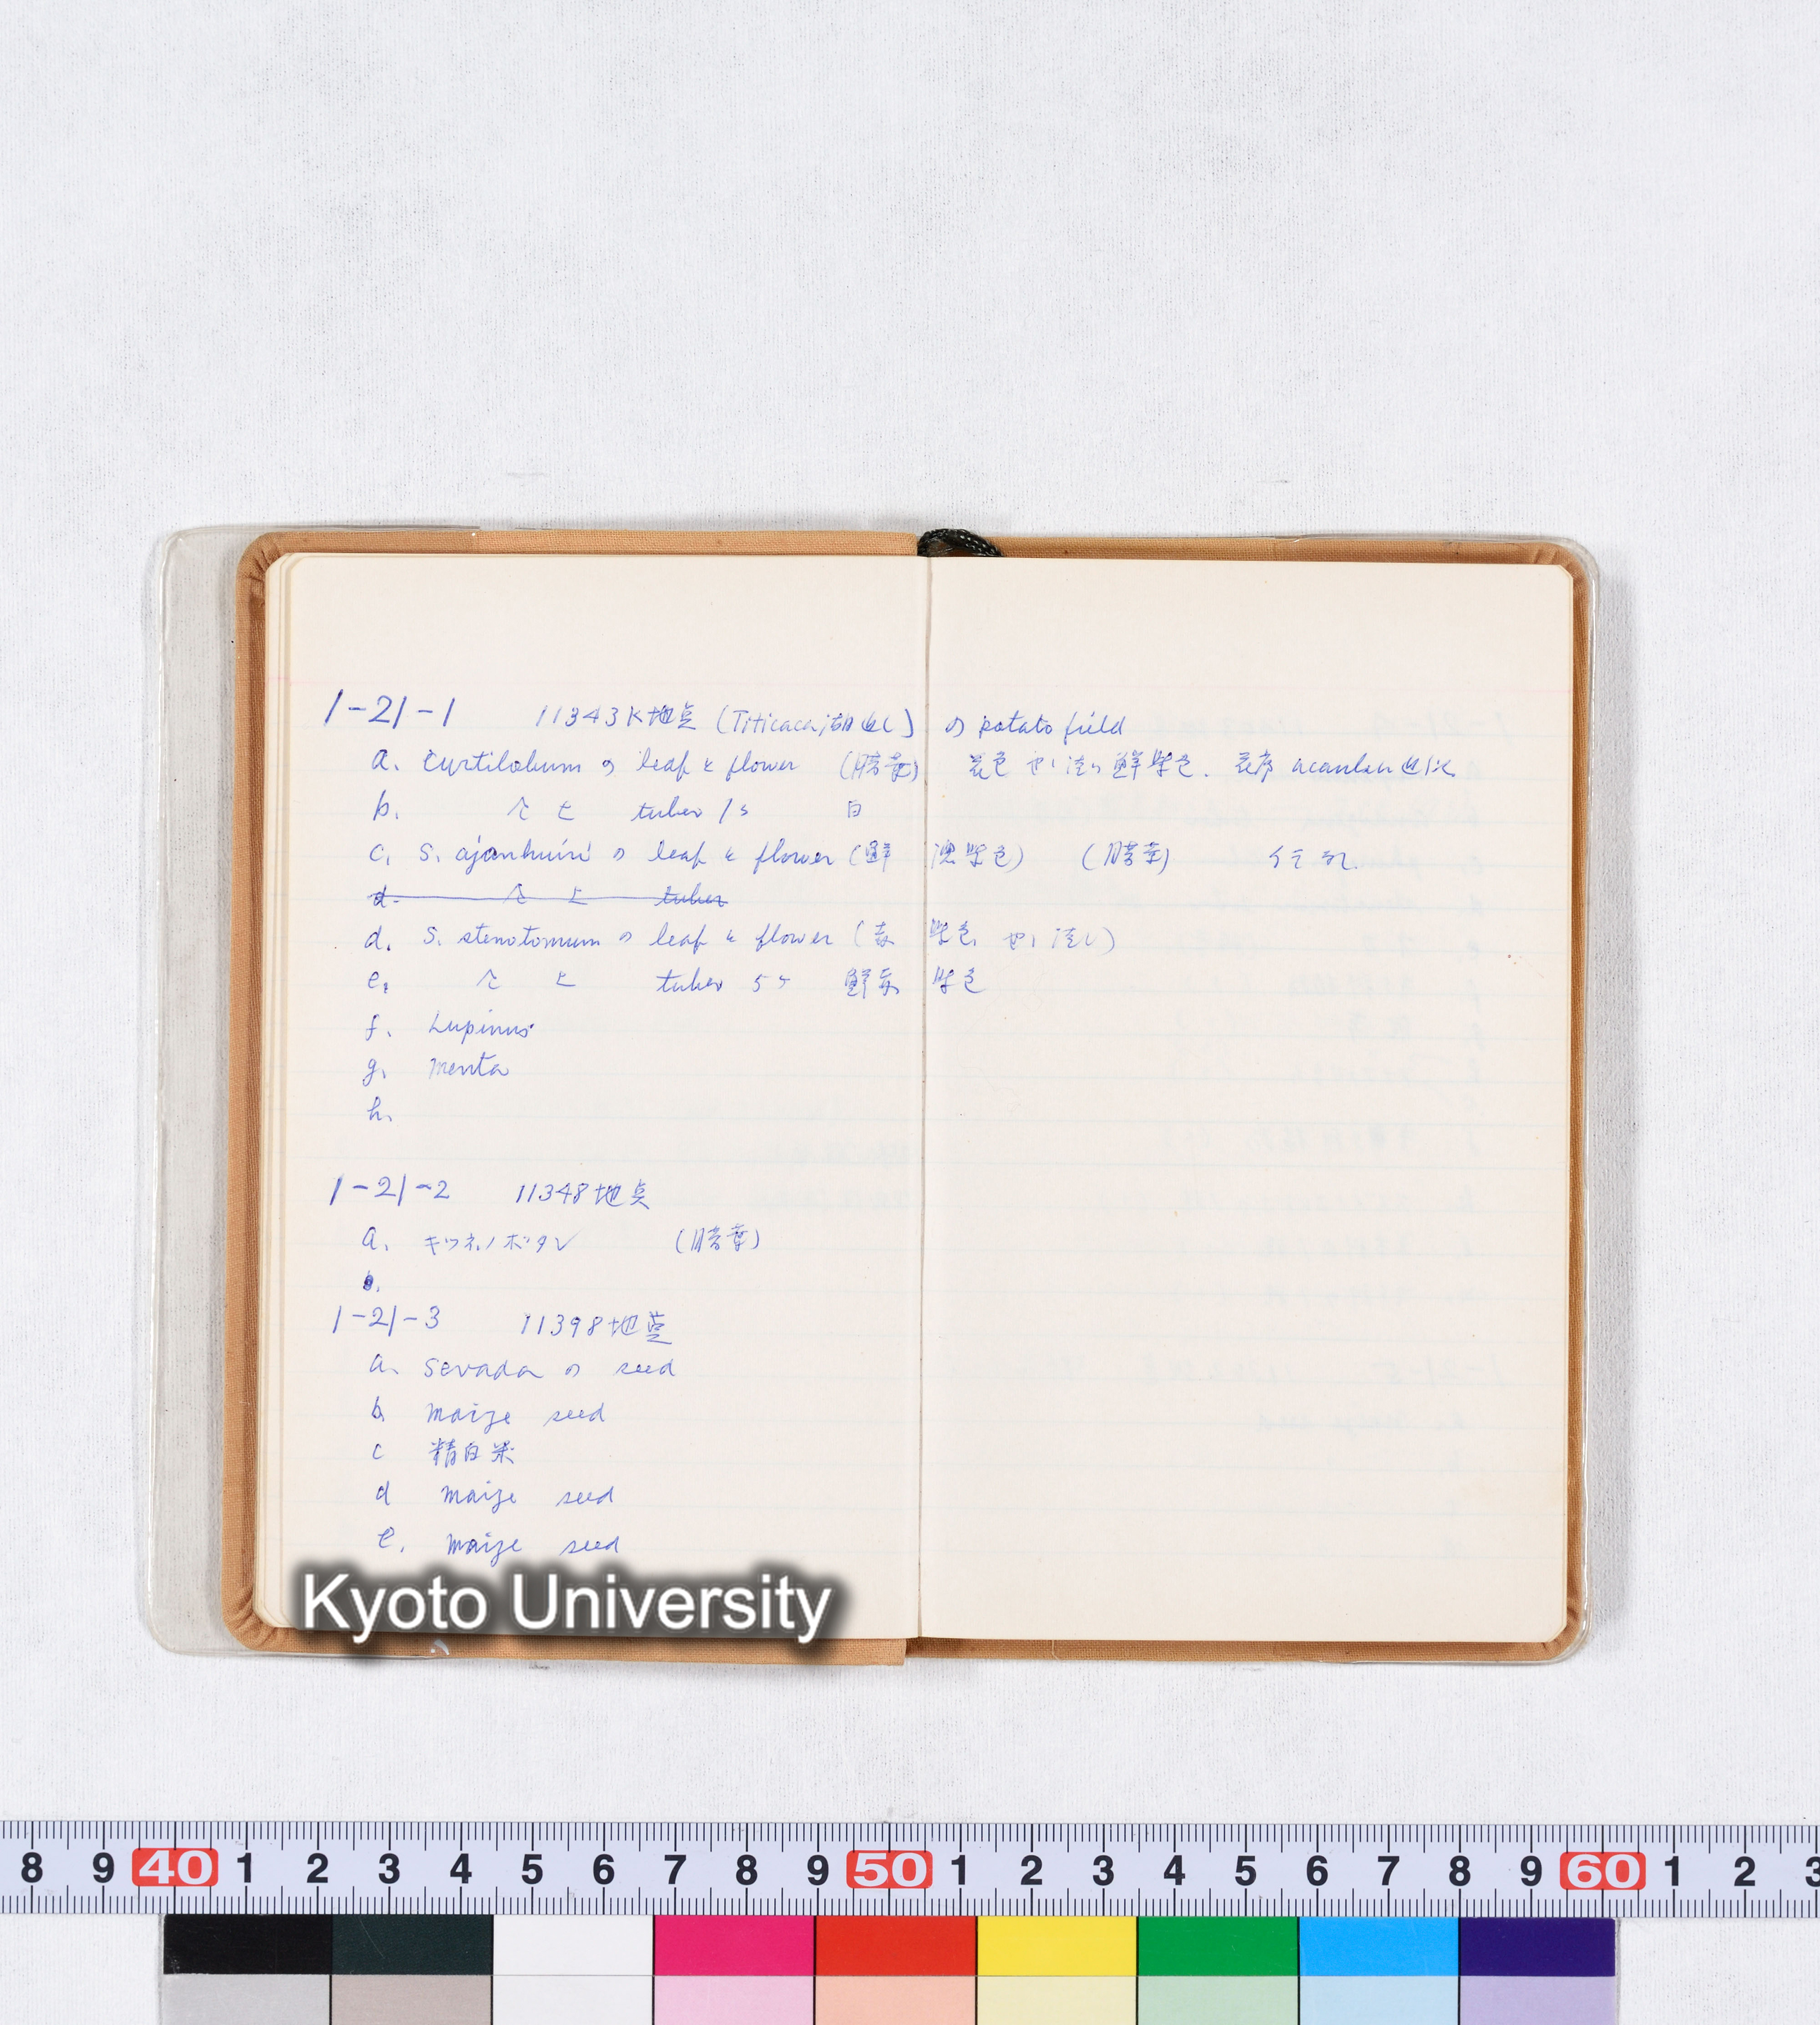 1-21-1 11343K地点 (Titicaca湖 の potato field
a. curtilobum の leaf と flower (腊葉) 花色 やゝ淡い鮮紫色. 花序
b. 〃 と tuber 1ヶ 白
c. S. ajanhuiri の leaf と flower (鮮濃紫色) (腊葉)
d. 〃 と tuber
d. S. stenotomum の leaf と flower (赤紫色 やゝ淡い)
e. 〃 と tuber 5ヶ 鮮赤紫色
f. Lupinus
g. menta
h.
1-21-2 11348地点
a. キツネノボタン (腊葉)
b.
1-21-3 11398地点
a. sevada の seed
b maize seed
c 精白米
d maize seed
e. maize seed
Kyoto University
8 9 40 1 2 3 4 5 6 7 8 9 50 1 2 3 4 5 6 7 8 9 60 1 2 3